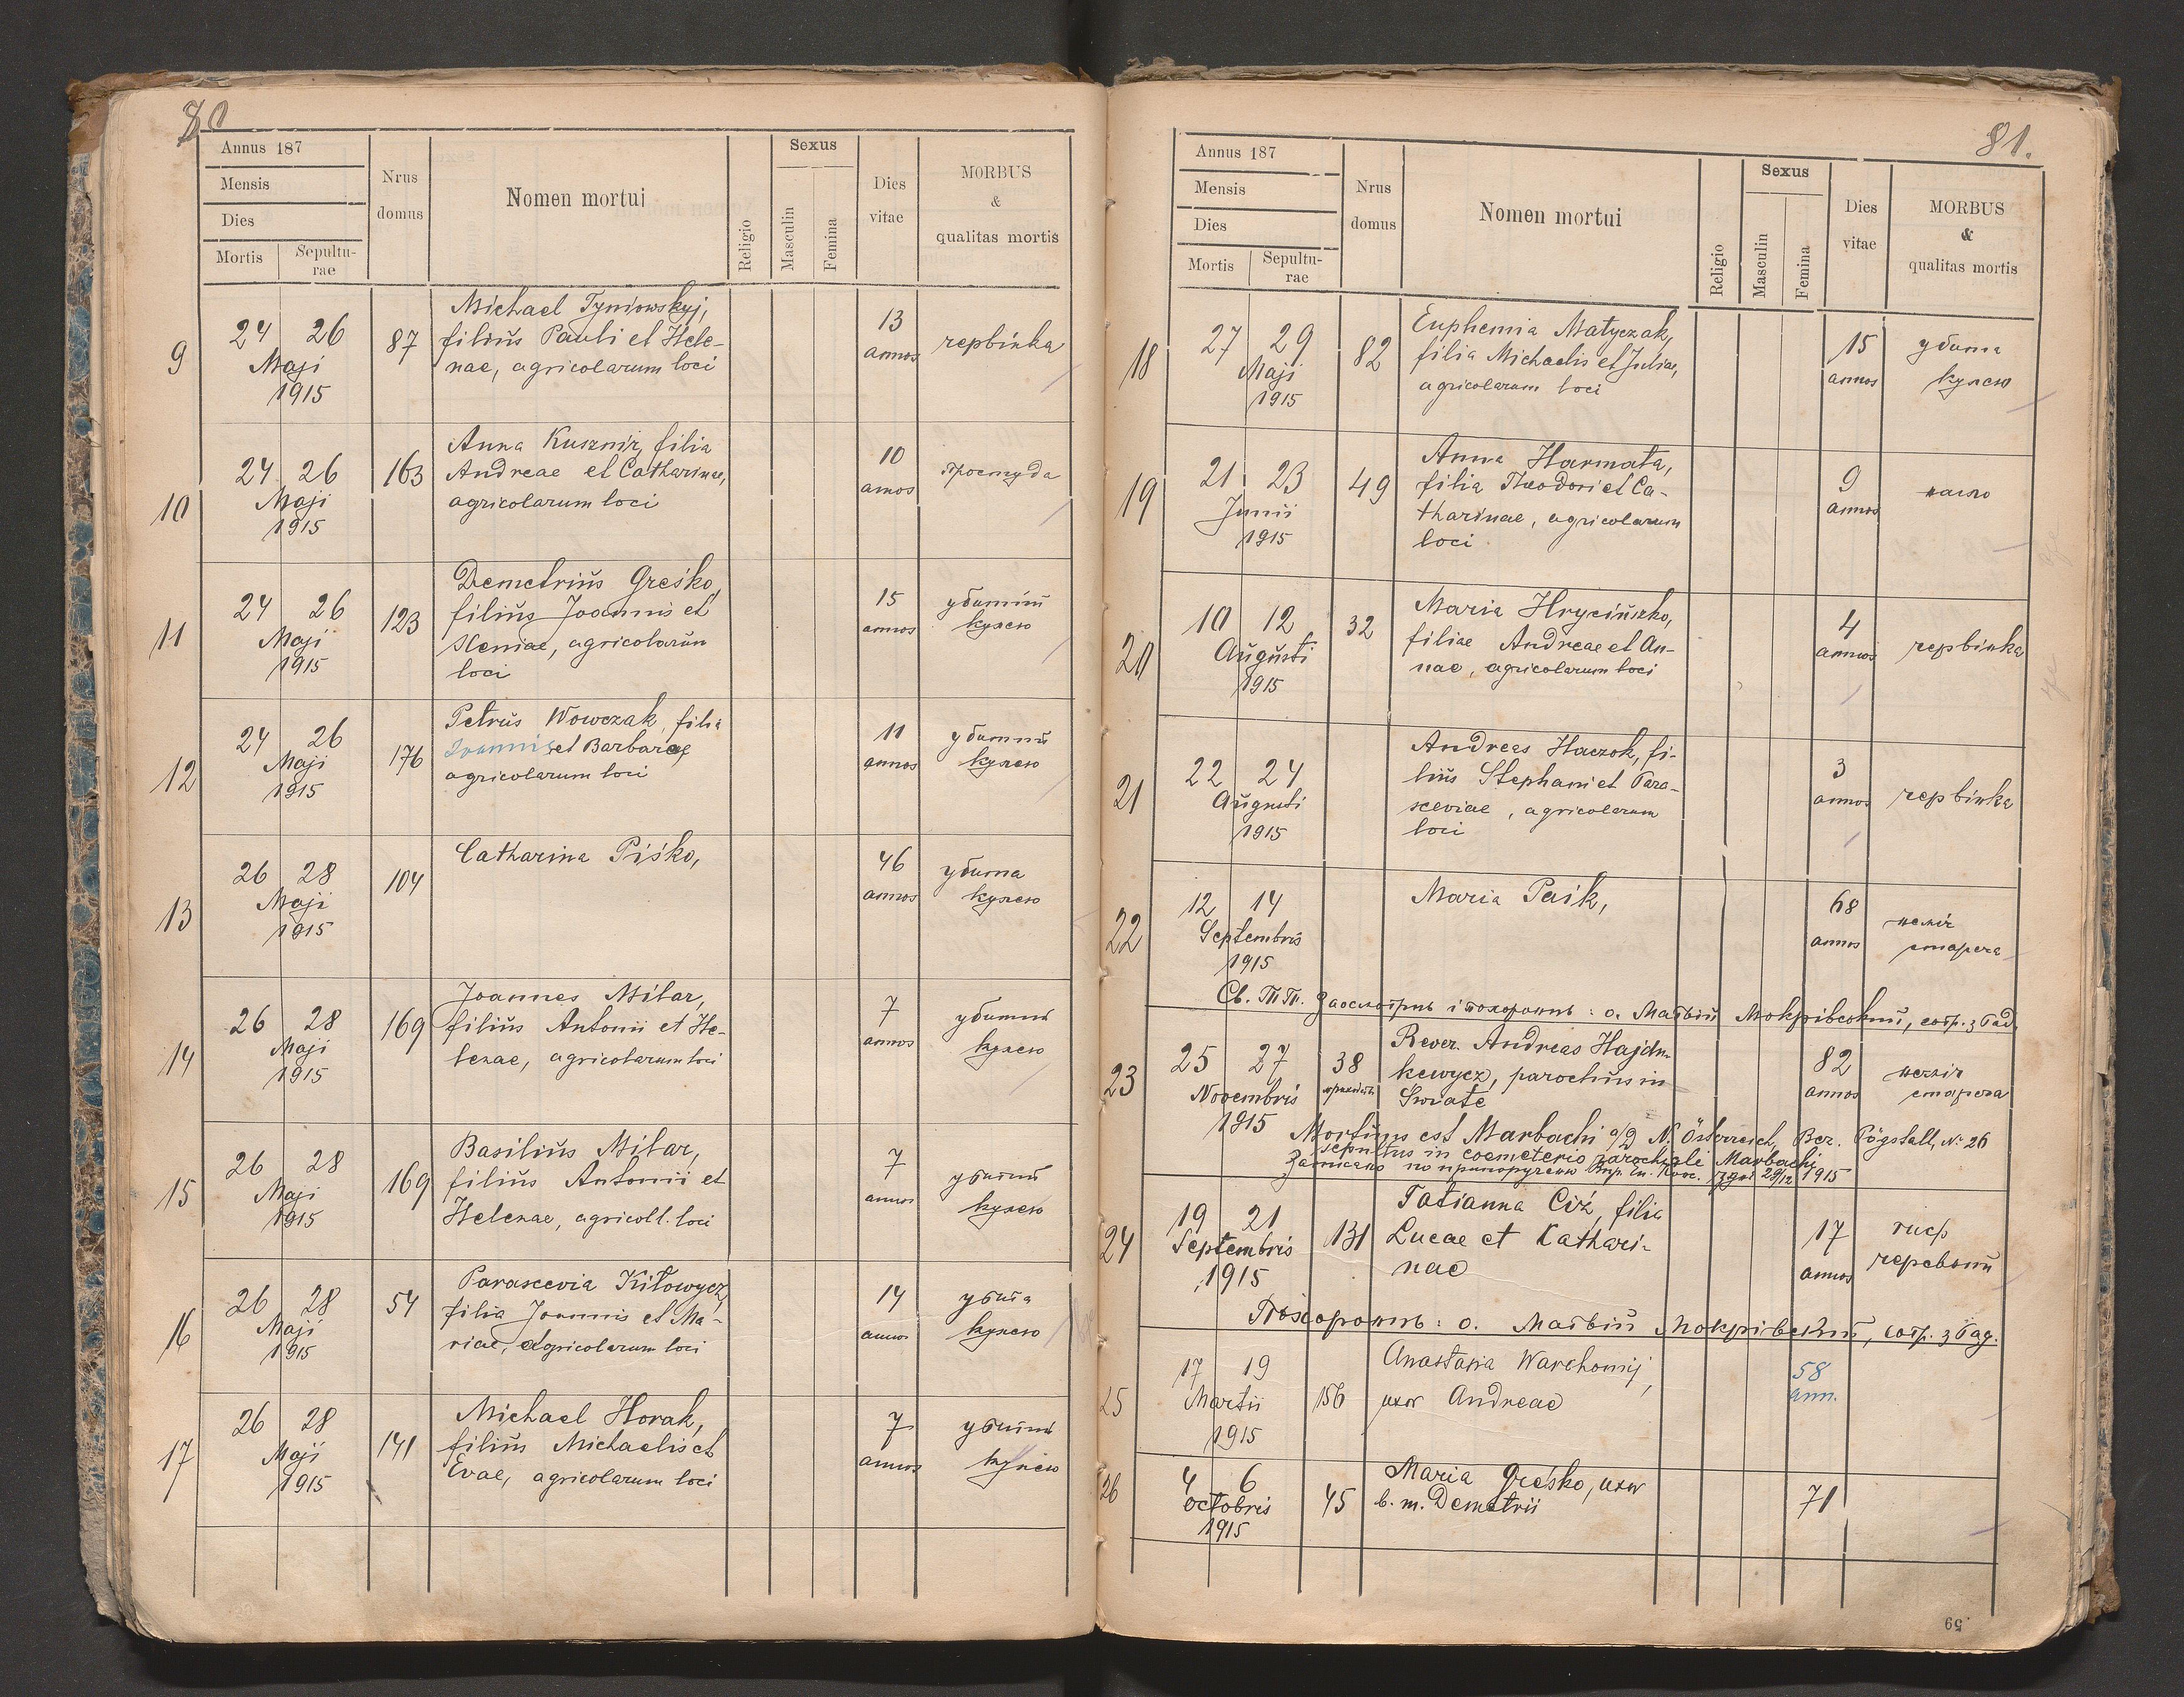 80
Annus 187
Mensis
Dies
Mortis
Sepultu-
rae
Nrus
domus
Nomen mortui
Religio
Sexus
Masculin
Femina
Dies
vitae
MORBUS
&
qualitas mortis
9
24 26
Maji
1915
87
Michael Tyniowskyj,
filius Pauli et Hele-
nae, agricolarum loci
13
annos
червінка
10
24 26
Maji
1915
163
Anna Kusznir, filia
Andreae et Catharinae,
agricolarum loci
10
annos
простуда
11
24 26
Maji
1915
123
Demetrius Greśko,
filius Joannis et
Xeniae, agricolarum
loci
15
annos
убитий
кулею
12
24 26
Maji
1915
176
Petrus Wowczak, filia
Ioannis et Barbarae
agricolarum loci
11
annos
убитий
кулею
13
26 28
Maji
1915
104
Catharina Piśko,
46
annos
убита
кулею
14
26 28
Maji
1915
169
Joannes Milar,
filius Antonii et He-
lenae, agricolarum loci
7
annos
убитий
кулею
15
26 28
Maji
1915
169
Basilius Milar,
filius Antonii et
Helenae, agricoll. loci
7
annos
убитий
кулею
16
26 28
Maji
1915
54
Parascevia Kitowycz,
filia Joannis et Ma-
riae, agricolarum loci
14
annos
убита
кулею
17
26 28
Maji
1915
141
Michael Horak,
filius Michaelis et
Evae, agricolarum loci
7
annos
убитий
кулею
81.
Annus 187
Mensis
Dies
Mortis
Sepultu-
rae
Nrus
domus
Nomen mortui
Religio
Sexus
Masculin
Femina
Dies
vitae
MORBUS
&
qualitas mortis
18
27 29
Maji
1915
82
Euphemia Matyczak,
filia Michaelis et Juliae,
agricolarum loci
15
annos
убита
кулею
19
21 23
Junii
1915
49
Anna Harmata,
filia Theodori et Ca-
tharinae, agricolarum
loci
9
annos
20
10 12
Augusti
1915
32
Maria Hryciuszko,
filiae Andreae et An-
nae, agricolarum loci
4
annos
червінка
21
22 24
Augusti
1915
Andreas Haczok, fi-
lius Stephani et Para-
sceviae, agricolarum
loci
3
annos
червінка
22
12 14
Septembris
1915
Maria Paik,
68
annos
неміч
стареча
Св. Т.Т. заосмотрив і похоронив: о. Матвій Мокрівський, сотр. з Рад.
23
25 27
Novembris
1915
38
Rever. Andreas Hajdu-
kewycz, parochus in
Swiate
82
annos
неміч
стареча
Mortuus est Marbachi a/D N. Österreich, Bez. Pögstall, N. 26
sepultus in coemeterio parochiali Marbachi
Записано по припорученю Впр. Еп. Конс. з дня 29/12 1915
24
19 21
Septembris
1915
131
Tatianna Ciż, filia
Lucae et Kathari-
nae
17
annos
тиф
черевний
Похоронив: о. Матвій Мокрівський, сотр. з Рад.
25
17 19
Martii
1915
156
Anastasia Warchomij,
uxor Andreae
58
ann.
26
4 6
octobris
1915
45
Maria Greśko, uxor
b. m. Demetrii
71
59